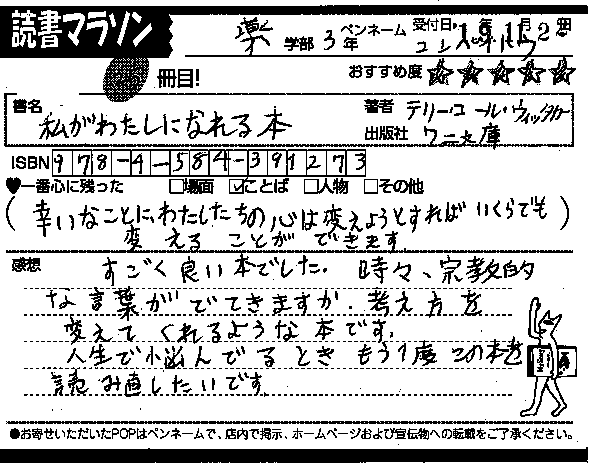 読書マラソン
薬 学部 3年 ペンネーム 受付日: 19年11月22日
コンパドルウ
冊目! おすすめ度 ☆☆☆☆☆
書名 私がわたしになれる本
著者 テリー・コール・ウィッタカー
出版社 ワニ文庫
ISBN 978-4-584-391273
♥一番心に残った □場面 ☑ことば □人物 □その他
(幸いなことに、わたしたちの心は変えようとすればいくらでも
変えることができます)
感想 すごく良い本でした。時々、宗教的
な言葉がでてきますが、考え方を
変えてくれるような本です。
人生で悩んでるときもう1度この本を
読み直したいです
●お寄せいただいたPOPはペンネームで、店内で掲示、ホームページおよび宣伝物への転載をご了承ください。